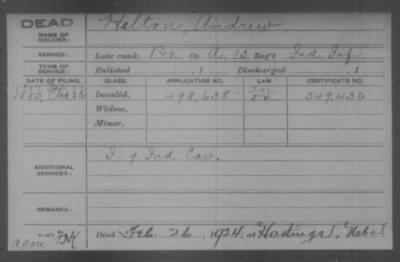 DEAD
Helton, Andrew
NAME OF SOLDIER:
SERVICE: Late rank, Pvt. Co. A, 13, Reg't Ind. Inf.
TERM OF SERVICE: Enlisted , 1 Discharged , 1
DATE OF FILING. CLASS. APPLICATION NO. LAW. CERTIFICATE NO.
1883, Oct 26 Invalid, 498,638 349,436
Widow,
Minor,
ADDITIONAL SERVICES: I. 9 Ind. Cav.
REMARKS:
Died Feb. 26, 1924, at Hastings, Nebr.